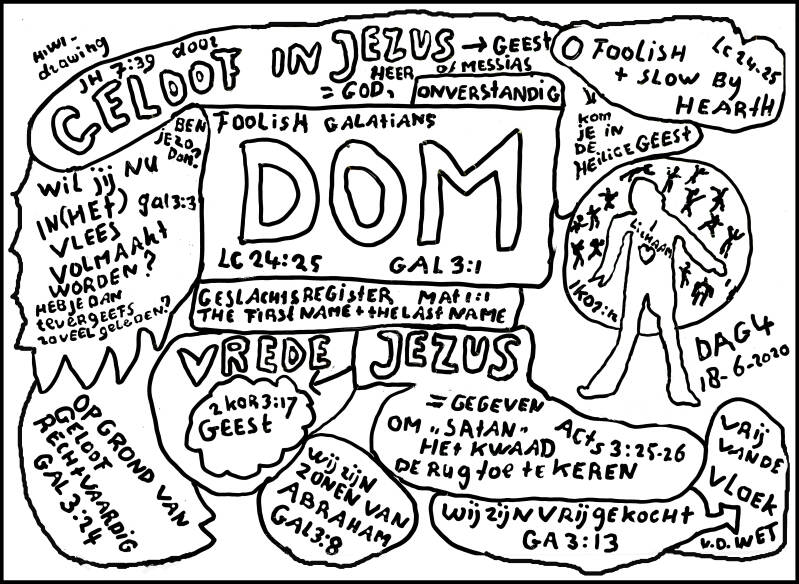 HiWi-
drawing
JH 7:39 door
GELOOF IN JEZUS → GEEST
HEER of MESSIAS
= GOD,
ONVERSTANDIG
O FOOLISH
+ SLOW BY
HEARTH
LC 24:25
kom
JE IN
DE
HEILIGE GEEST
BEN
JE ZO
Dom?
FOOLISH GALATIANS
DOM
LC 24:25 GAL 3:1
WIL JIJ NU
IN (HET) gal 3:3
VLEES
VOLMAAKT
WORDEN?
HEB JE DAN
tEVERGEEFS
ZOVEEL GELEDEN?
1 LICHAAM
1 KOR:12
GESLACHTSREGISTER MAT 1:1
THE FIRST NAME + tHE LAST NAME
DAG 4
18-6-2020
VREDE
JEZUS
2 KOR 3:17
GEEST
= GEGEVEN
OM „SATAN"
HET KWAAD
DE RUG toE tE KEREN
ACTS 3:25-26
OP GROND VAN
GELOOF
RECHTVAARDIG
GAL 3:24
WIJ ZIJN
ZONEN VAN
ABRAHAM
GAL 3:8
WIJ ZIJN VRIJ GEKOCHT
GA 3:13
VRIJ
VAN DE
VLOEK
v.D. WET